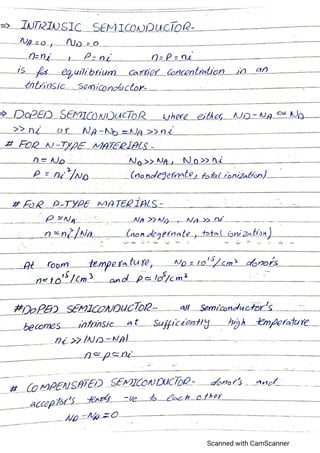 => INTRINSIC SEMICONDUCTOR-
NA=0 , ND=0
n=ni , P=ni n=P=ni
is for equilibrium carrier concentration in an
intrinsic semiconductor.
=> DOPED SEMICONDUCTOR where either ND-NA ≃ ND
>> ni or NA-ND ≃ NA >> ni
# FOR N-TYPE MATERIALS-
n ≃ ND ND>>NA, ND>>ni
P ≃ ni²/ND (nondegernate, total ionization)
# FOR P-TYPE MATERIALS-
P ≃ NA NA>>ND , NA>> ni
n ≃ ni²/NA (non degernate, total ionization)
At room temperature, ND = 10¹⁵/cm³ donors
n≃10¹⁵/cm³ and p≃10⁵/cm³
#DOPED SEMICONDUCTOR- all semiconductor's
becomes intrinsic at sufficiently high temperature
ni >> |ND-NA|
n≃p≃ni
# COMPENSATED SEMICONDUCTOR- donor's and
acceptor's tends -ve to each other
ND-NA=0
Scanned with CamScanner